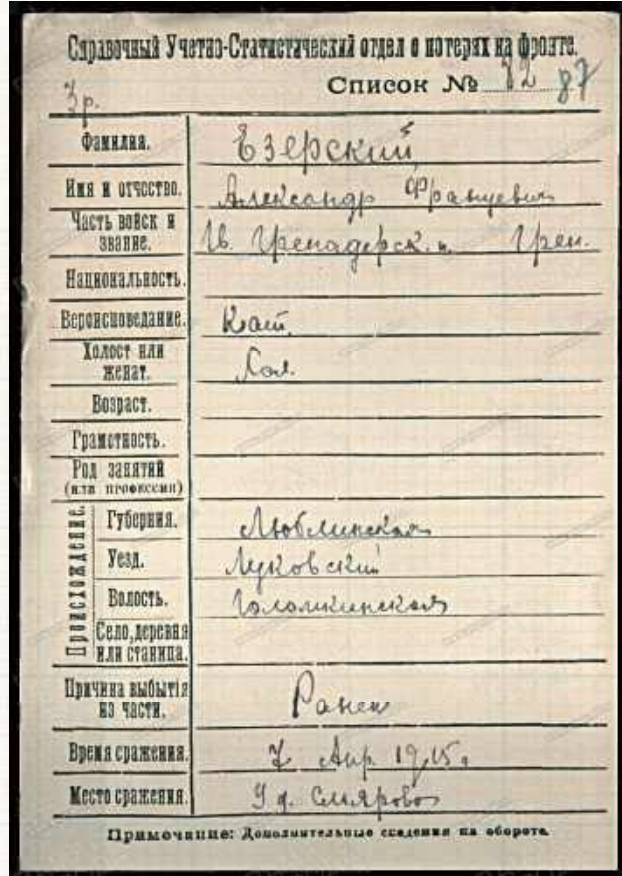 Справочный Учетно-Статистический отдел о потерях на фронте.
Список № 82 87
Зр.
Фамилия. Езерский
Имя и отчество. Александр Францевич
Часть войск и звание. Гренадерск. п. Грен.
Национальность.
Вероисповедание. Кат.
Холост или женат. Хол.
Возраст.
Грамотность.
Род занятий (или профессии)
Происхождение.
Губерния. Люблинская
Уезд. Луковский
Волость.
Село, деревня или станица.
Причина выбытія из части. Ранен
Время сражения. 7 Апр. 1915г
Место сражения. У д.
Примечание: Дополнительные сведения на обороте.